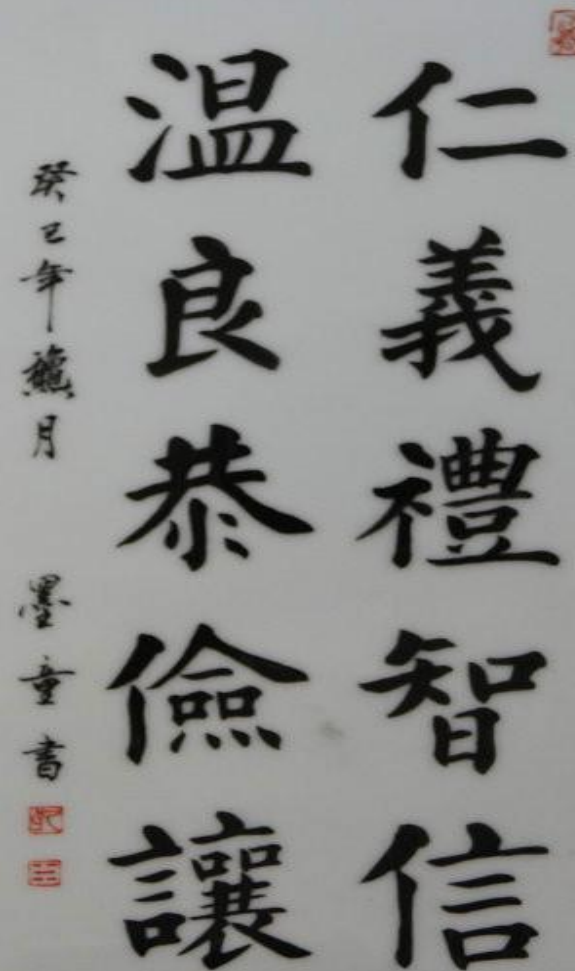 仁義禮智信
温良恭儉讓
癸巳年蘸月
墨童書